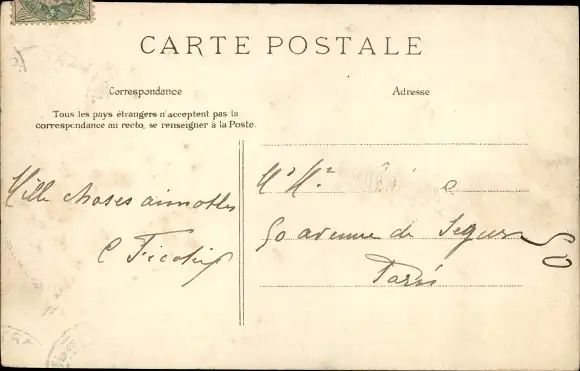 CARTE POSTALE
Correspondance
Adresse
Tous les pays étrangers n'acceptent pas la
correspondance au recto, se renseigner à la Poste.
Mille choses aimables
50 avenue de Ségur
Paris